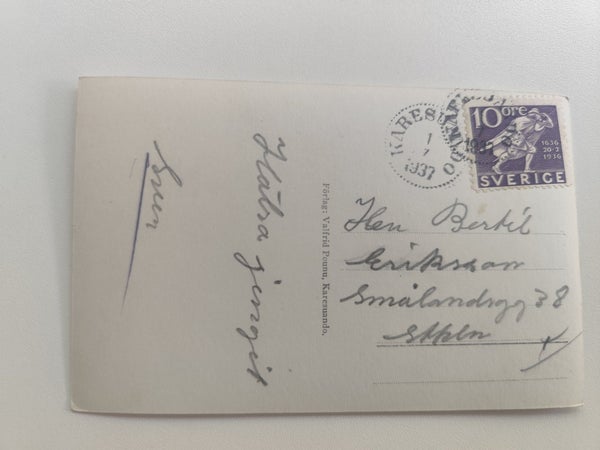 Hälsa
Sven
Förlag: Valfrid Pounu, Karesuando.
KARESUANDO
1
7
1937
10 öre
1636
20-2
1936
SVERIGE
Herr Bertil
Eriksson
38
Sthlm